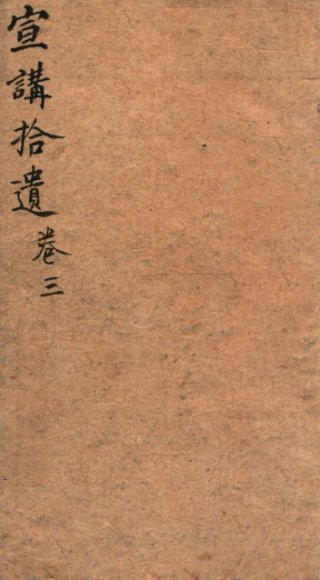 宣講拾遺 卷三